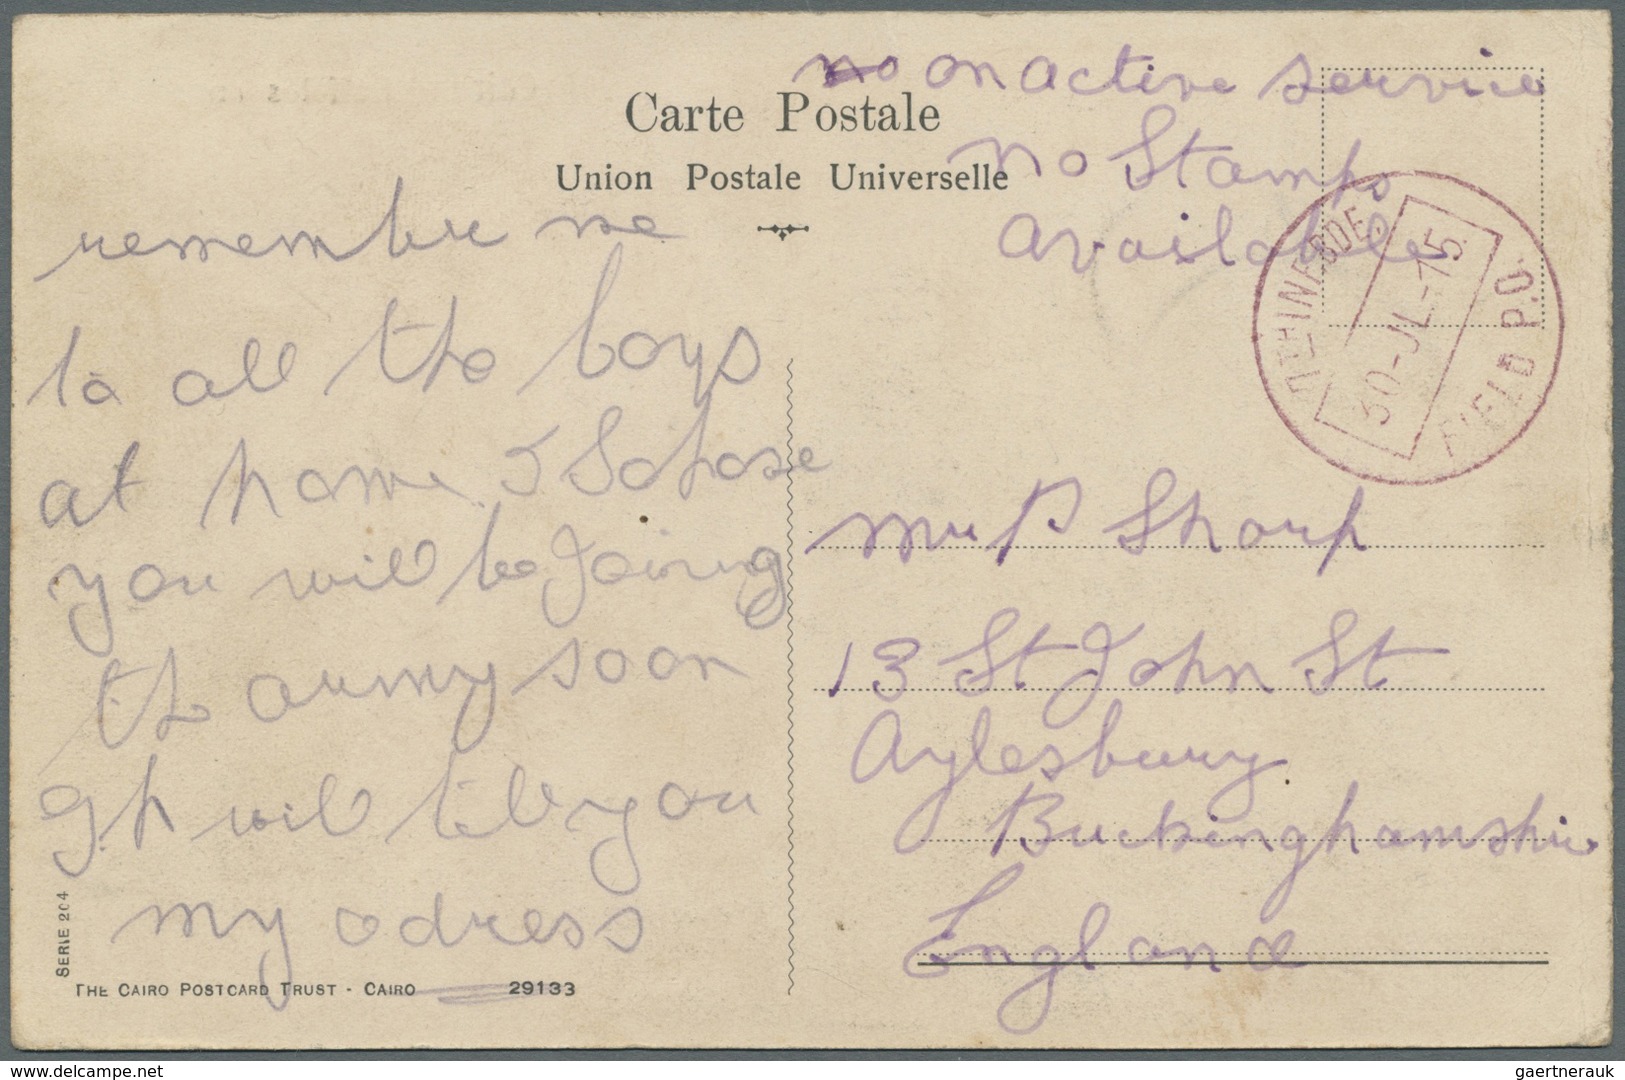 no on active service
Carte Postale
no Stamps
Union Postale Universelle
Available
remembre me
to all the boys
at home I Sopose
you will be Joining
the army soon
Gh will tell you
my adress
INF. BDE.
30-JL-15
FIELD P.O.
Mr P Sharp
13 St John St
Aylesbury
Buckinghamshire
England
SERIE 204
THE CAIRO POSTCARD TRUST - CAIRO 29133
delcampe.net
gaertnerauk